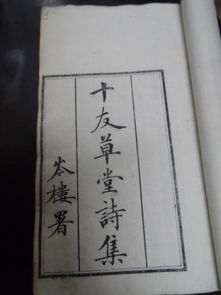 十友草堂詩集
岑樓署